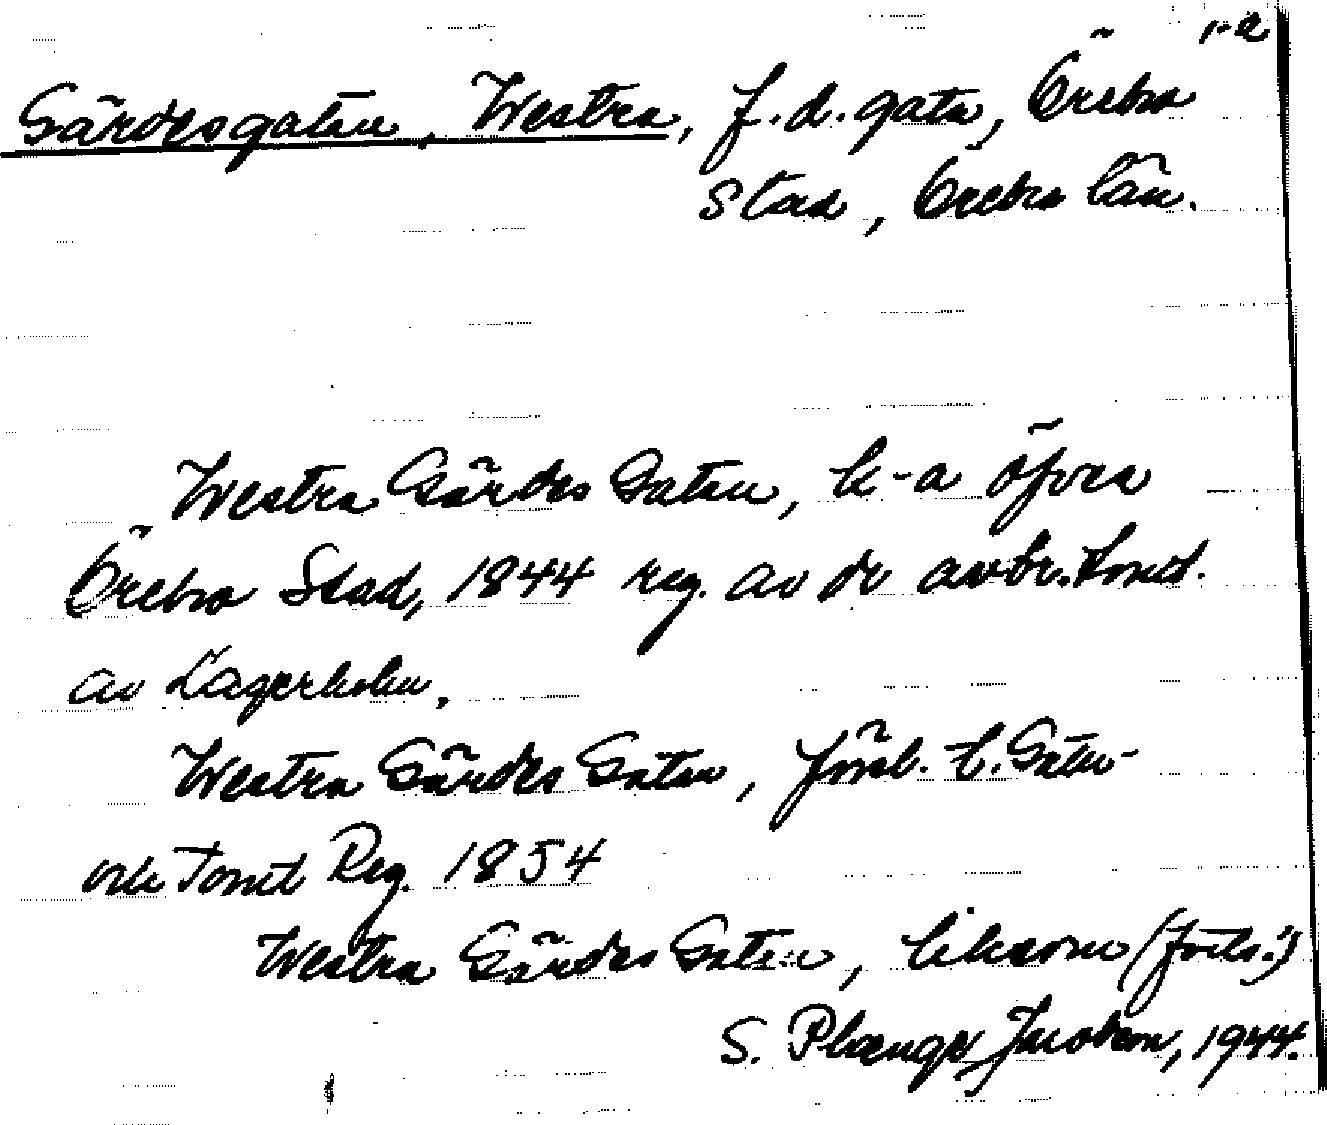 1-a
Gärdesgatan, Westra, f.d. gata, Örebro
Stad, Örebro län.
Westra Gärdes Gatan, k-a öfver
Örebro Stad, 1844 reg. av de avbr. tomt.
av Lagerholm.
Westra Gärdes Gatan, försl. t. Gatu-
och Tomt Reg. 1854
Westra Gärdes Gatan, liksom (forts.)
S. Plænge Jacobson, 1944.